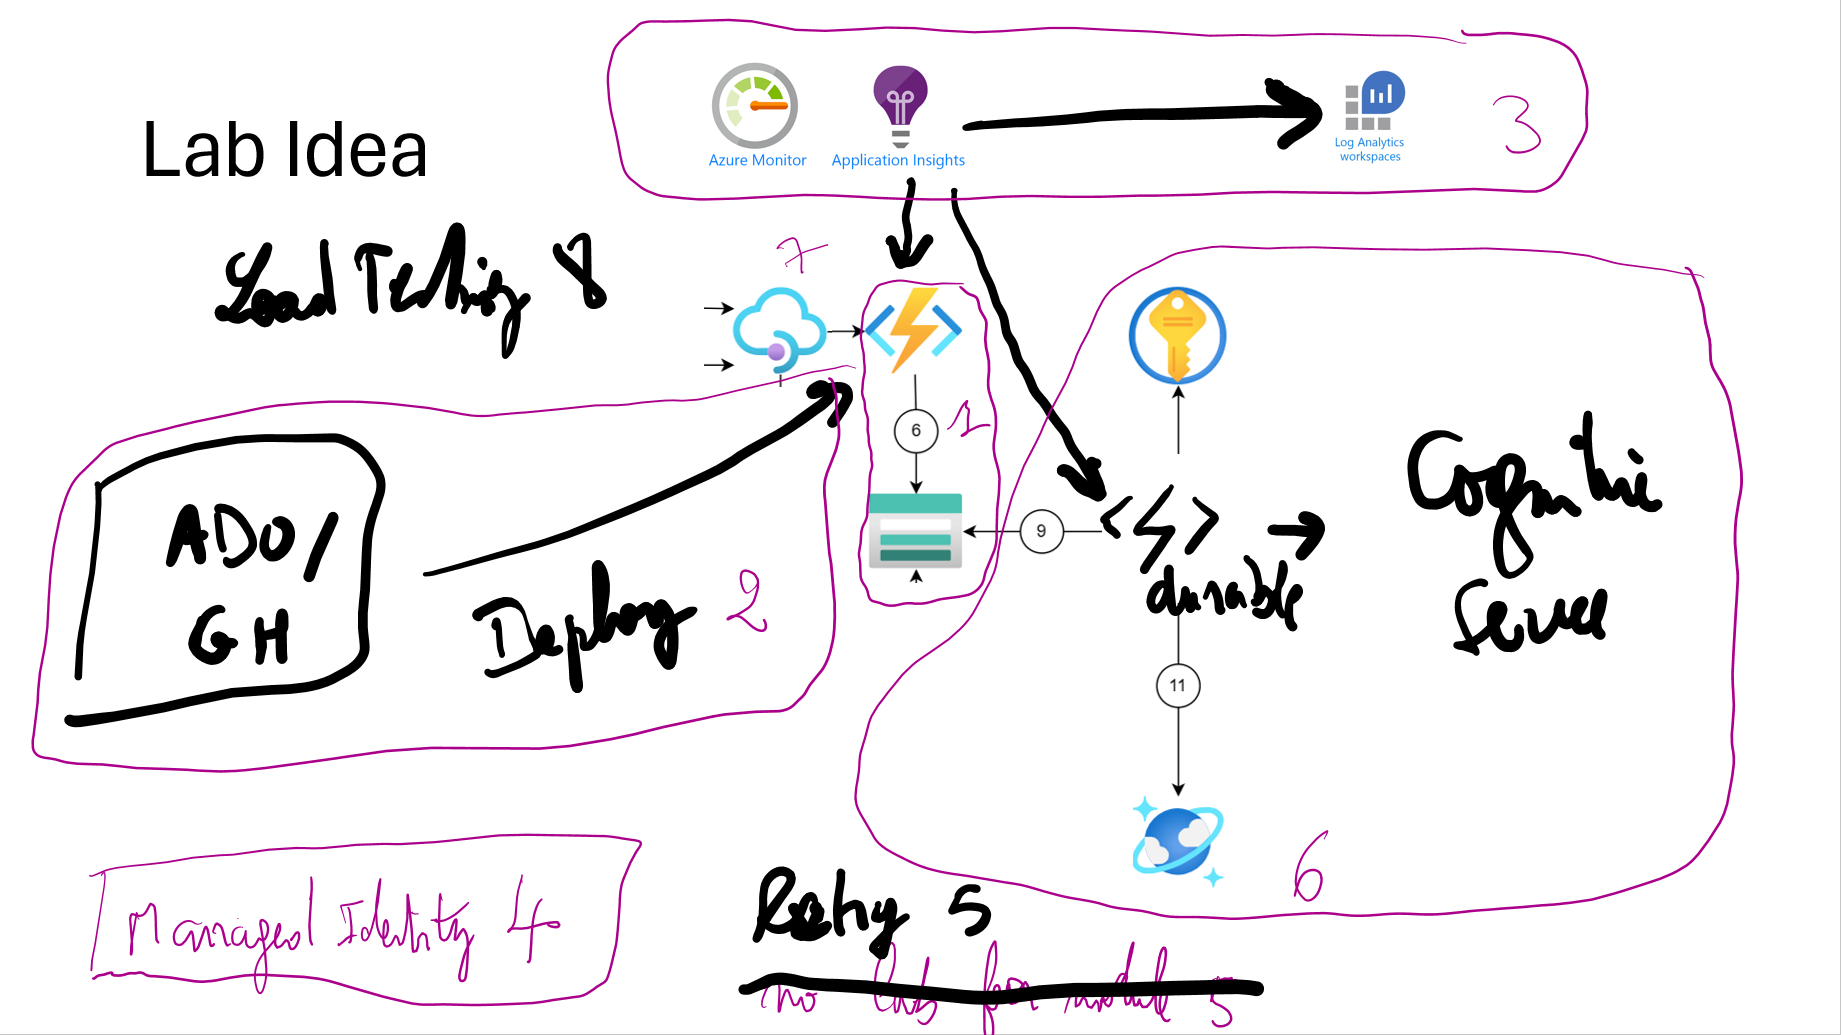 Lab Idea
Azure Monitor
Application Insights
Log Analytics
workspaces
3
Load Testing 8
7
6
1
9
ADO/
GH
Deploy 2
durable
Cognitive
Service
11
6
Managed Identity 4
Retry 5
no labs for module 5